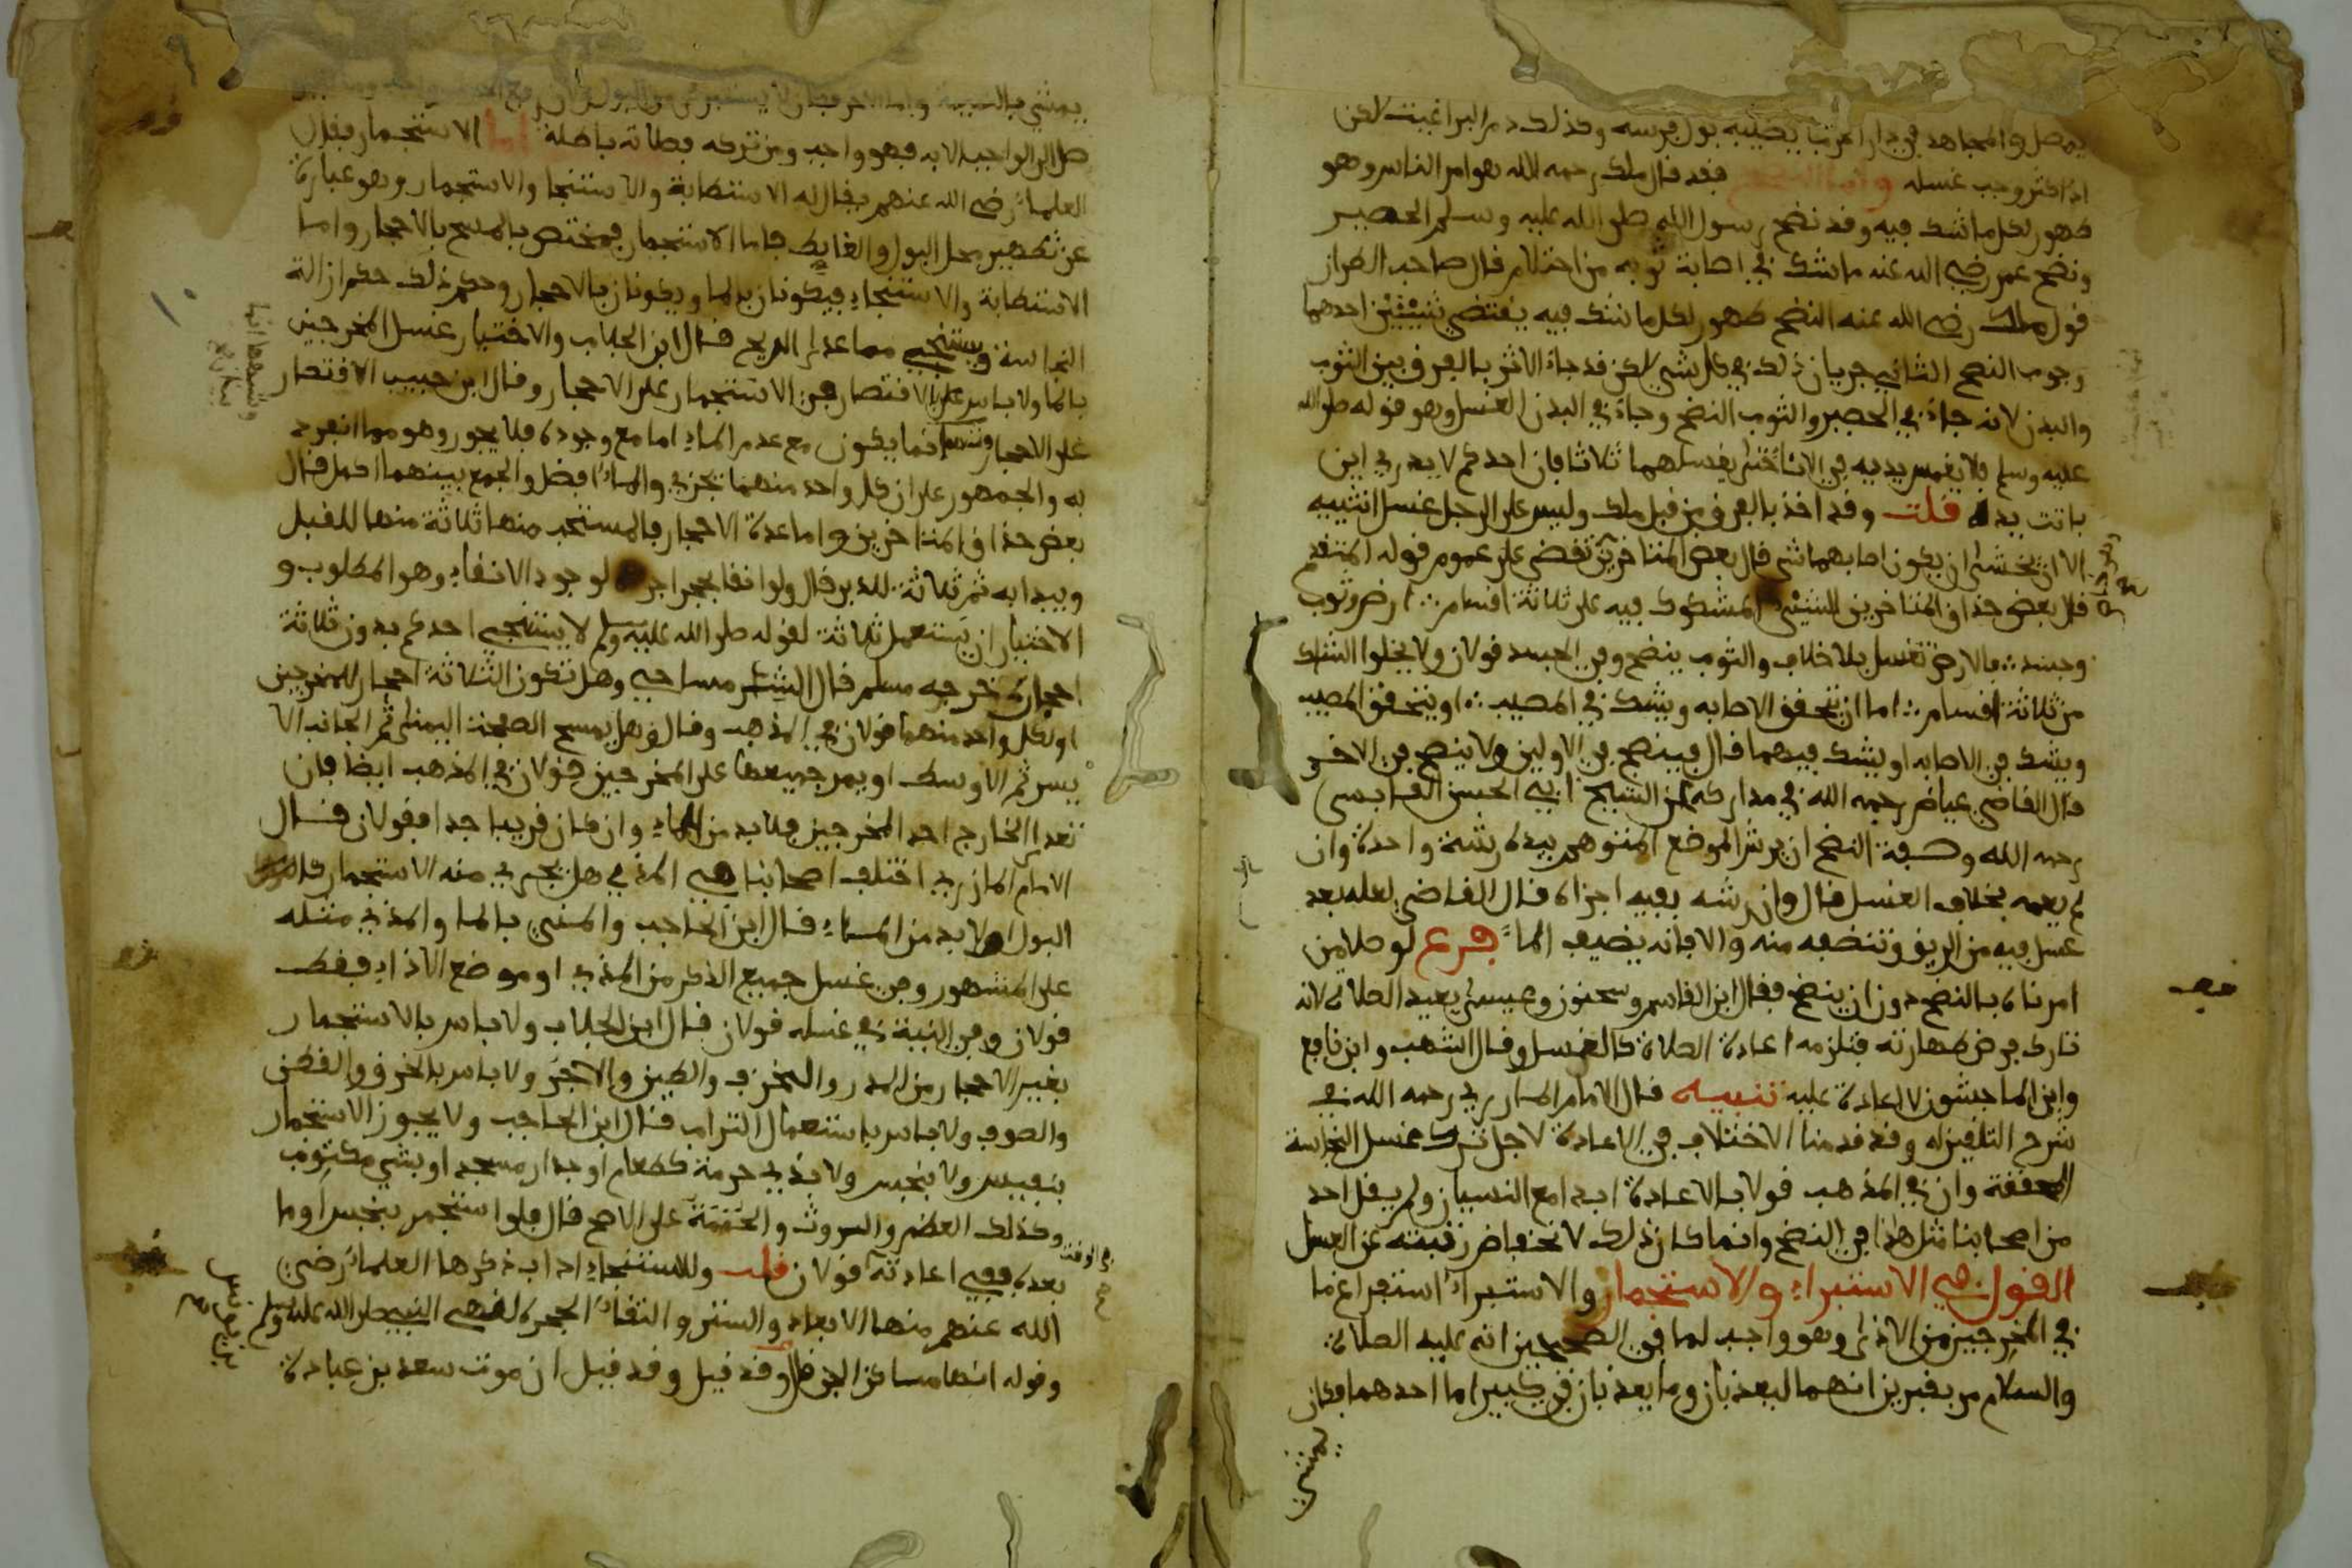 يمصل والمجاهد في دار الحرب يصيبه بول فرسه وكذلك دم البراغيث لاكن
اذا كثر وجب غسله واما النضح فقد قال ملك رحمه الله هو امر الناس وهو
طهور لكل ما شك فيه وقد نضح رسول الله صلى الله عليه وسلم الحصير
ونضح عمر رضي الله عنه ما شك في اصابة ثوبه من احتلام قال صاحب الطراز
قول ملك رضي الله عنه النضح طهور لكل ما شك فيه يقتضي شيئين احدهما
وجوب النضح الثاني جريان ذلك في كل شيء لاكن قد جاء الاثر بالفرق بين الثوب
والبدن لانه جاء في الحصير والثوب النضح وجاء في البدن الغسل وهو قوله صلى الله
عليه وسلم فلا يغمس يديه في الاناء حتى يغسلهما ثلاثا فان احدكم لا يدري اين
باتت يده قلت وقد اخذ بالفرق من قبل ملك وليس على الرجل غسل انثييه
الا ان يخشى ان يكون اصابهما شيء قال بعض المتاخرين تقضي على عموم قوله المتقدم
قال بعض حذاق المتاخرين الشيء المشكوك فيه على ثلاثة اقسام ارض وثوب
وجسد فالارض تغسل بلا خلاف والثوب ينضح وفي الجسد قولان ولا يخلوا الشك
من ثلاثة اقسام اما ان تتحقق الاصابه ويشك في المصيب او يتحقق المصيب
ويشك في الاصابه او يشك فيهما قال فينضح في الاولين ولا ينضح في الاخر
قال القاضي عياض رحمه الله في مداركه عن الشيخ ابي الحسن القابسي
رحمه الله وصفة النضح ان يرش الموضع المتوهم بيده رشة واحدة وان
لم يعمه بخلاف الغسل قال وان رشه بفيه اجزاه قال القاضي لعله بعد
غسل فيه من الريق وتنضفه منه والا فانه يضيف الماء فرع لو صلا من
امرناه بالنضح دون ان ينضح فقال ابن القاسم وسحنون وعيسى يعيد الصلاة لانه
تارك فرض طهارته فتلزمه اعادة الصلاة كالغسل وقال اشهب وابن نافع
وابن الماجشون لا اعادة عليه تنبيه قال الامام المازري رحمه الله في
شرح التلقين له وقد قدمنا الاختلاف في الاعادة لاجل ترك غسل النجاسة
المحققة وان في المذهب قولا بالاعادة ابدا مع النسيان ولم يقل احد
من اصحابنا مثل هذا في النضح وانما كان ذلك لانخفاض رتبته عن الغسل
القول في الاستبراء والاستجمار والاستبراء استفراغ ما
في المخرجين من الاذى وهو واجب لما في الصحيحين انه عليه الصلاة
والسلام مر بقبرين انهما ليعذبان وما يعذبان في كبير اما احدهما فكان
يمشي
يمشي بالنميمة واما الاخر فكان لا يستبرئ من البول
صل الى الواجب الا به فهو واجب ومن تركه فصلاته باطلة اما الاستجمار فقال
العلماء رضي الله عنهم يقال له الاستطابة والاستنجا والاستجمار وهو عبارة
عن تطهير محل البول والغايط فاما الاستجمار فمختص بالمسح بالاحجار واما
الاستطابة والاستنجاء فيكونان بالما ويكونان بالاحجار وحكم ذلك حكم ازالة
النجاسة ويستنجي مما عدا الريح قال ابن الجلاب والاختيار غسل المخرجين
بالما ولا باس على الاقتصار في الاستجمار على الاحجار وقال ابن حبيب الاقتصار
على الاحجار وشبهها انما يكون مع عدم الماء اما مع وجوده فلا يجوز وهو مما انفرد
به والجمهور على ان كل واحد منهما تجزي والماء افضل والجمع بينهما اكمل قال
بعض حذاق المتاخرين واما عدة الاحجار فالمستحب منها ثلاثة منها للقبل
ويبدا به ثم ثلاثة للدبر قال ولو انقا بحجر اجزا لوجود الانقاء وهو المطلوب و
الاختيار ان يستعمل ثلاثة لقوله صلى الله عليه وسلم لا يستنجي احدكم بدون ثلاثة
احجار خرجه مسلم قال الشرمساحي وهل تكون الثلاثة احجار للمخرجين
او لكل واحد منهما قولان في المذهب وقال وهل يمسح الصفحة اليمنى ثم الجانب الا
يسر ثم الاوسط او يمر جميعها على المخرجين قولان في المذهب ايضا فان
تعدا الخارج احد المخرجين فلا بد من الماء وان كان قريبا جدا فقولان قال
الامام المازري اختلف اصحابنا في المذي هل يجزي منه الاستجمار
البول او لا بد من الماء قال ابن الحاجب والمني بالما والمذي مثله
على المشهور وفي غسل جميع الذكر من المذي او موضع الاذاء فقط
قولان وفي النية في غسله قولان قال ابن الجلاب ولا باس بالاستجمار
بغير الاحجار من المدر والخزف والطين والاجر ولا باس بالخرق والقطن
والصوف ولا باس باستعمال التراب قال ابن الحاجب ولا يجوز الاستجمار
بنفيس ولا بنجس ولا بذي حرمة كطعام او جدار مسجد او بشيء مكتوب
وكذلك العظم والروث والحممة على الاصح قال فلو استجمر بنجس او ما
بعده ففي اعادته في الوقت قولان قلت وللاستنجاء اداب ذكرها العلماء رضي
الله عنهم منها الابعاد والستر واتقاء الجحرة لنهي النبي صلى الله عليه وسلم
وقوله انها مساكن الجن وقد قيل ان موت سعد بن عبادة